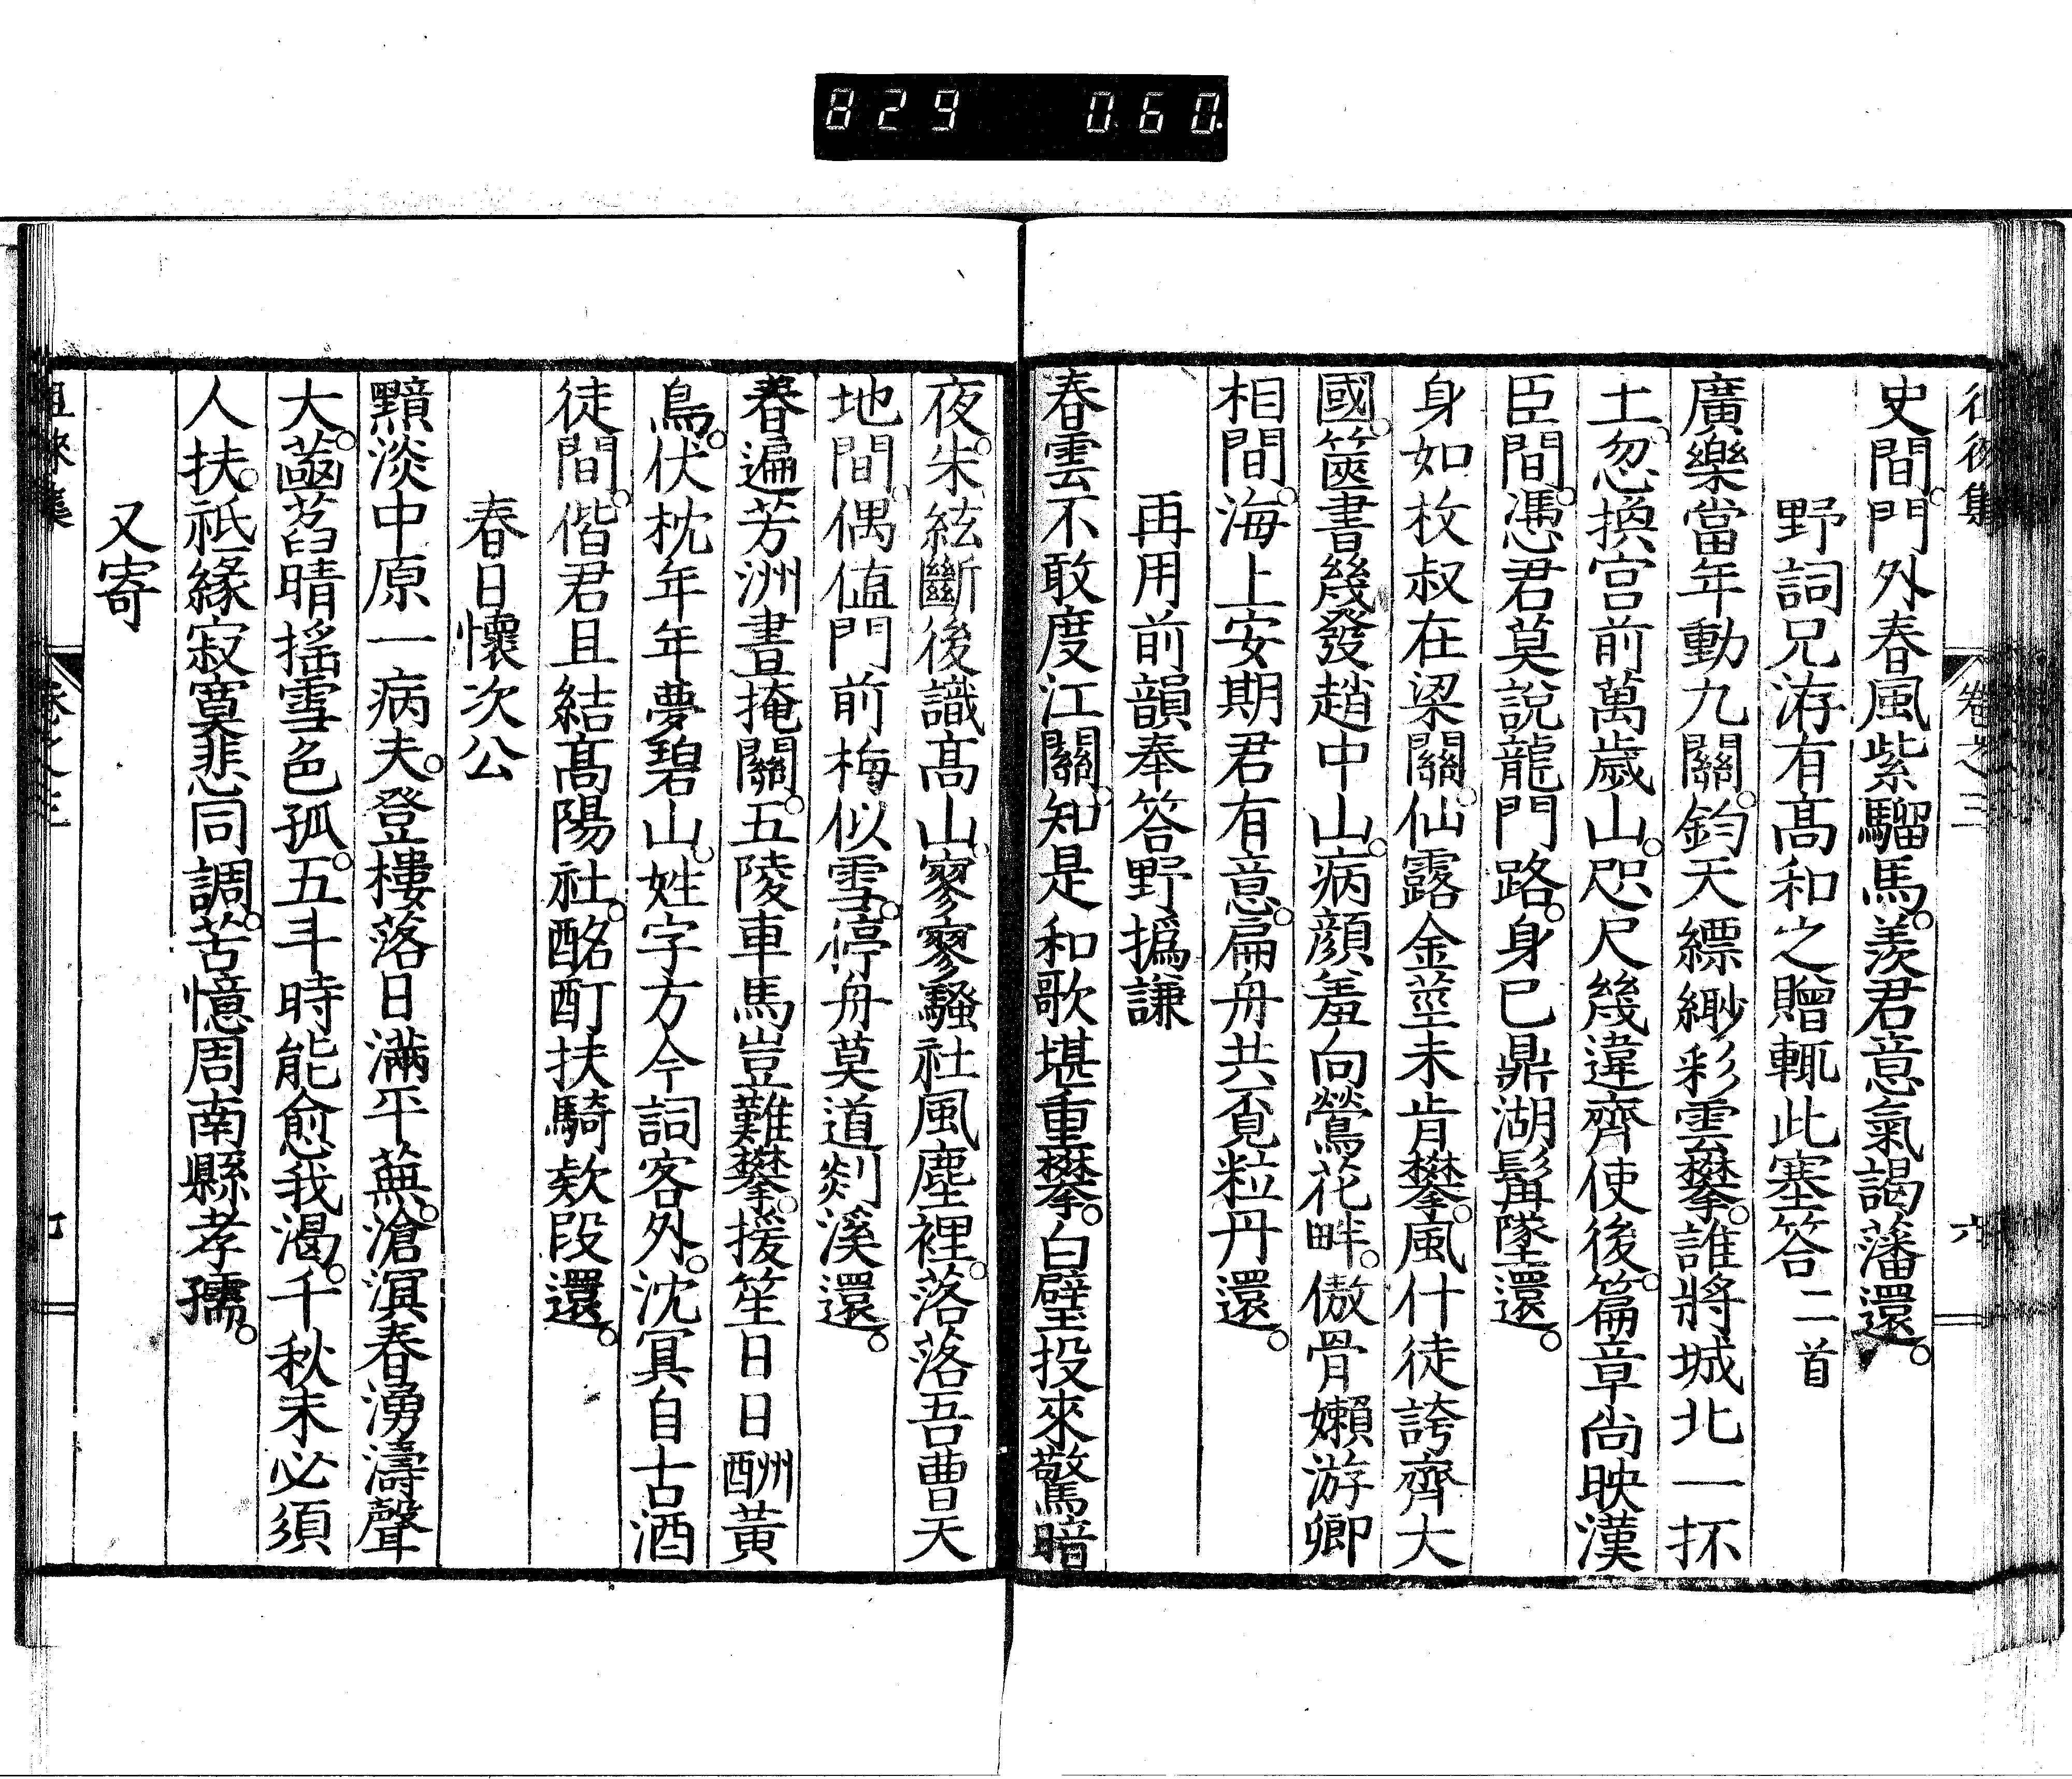 829 060
徂徠集 卷之三 六
史間。門外春風紫騮馬。羨君意氣謁藩還。
野詞兄洊有高和之贈輒此塞答二首
廣樂當年動九關。鈞天縹緲彩雲攀。誰將城北一抔
土。忽換宮前萬歲山。咫尺幾違齊使後。篇章尚映漢
臣間。憑君莫說龍門路。身已鼎湖髯墜還。
身如枚叔在梁關。仙露金莖未肯攀。風什徒誇齊大
國。篋書幾發趙中山。病顏羞向鶯花畔。傲骨嬾游卿
相間。海上安期君有意。扁舟共覓粒丹還。
再用前韻奉答野撝謙
春雲不敢度江關。知是和歌堪重攀。白璧投來驚暗
夜。朱絃斷後識高山。寥寥騷社風塵裡。落落吾曹天
地間。偶值門前梅似雪。停舟莫道剡溪還。
春遍芳洲晝掩關。五陵車馬豈難攀。援笙日日酬黃
鳥。伏枕年年夢碧山。姓字方今詞客外。沈冥自古酒
徒間。偕君且結高陽社。酩酊扶騎欵段還。
春日懷次公
黯淡中原一病夫。登樓落日滿平蕪。滄溟春湧濤聲
大。菡萏晴搖雪色孤。五斗時能愈我渴。千秋未必須
人扶。祇緣寂寞悲同調。苦憶周南縣孝孺。
又寄
徂徠集 卷之三